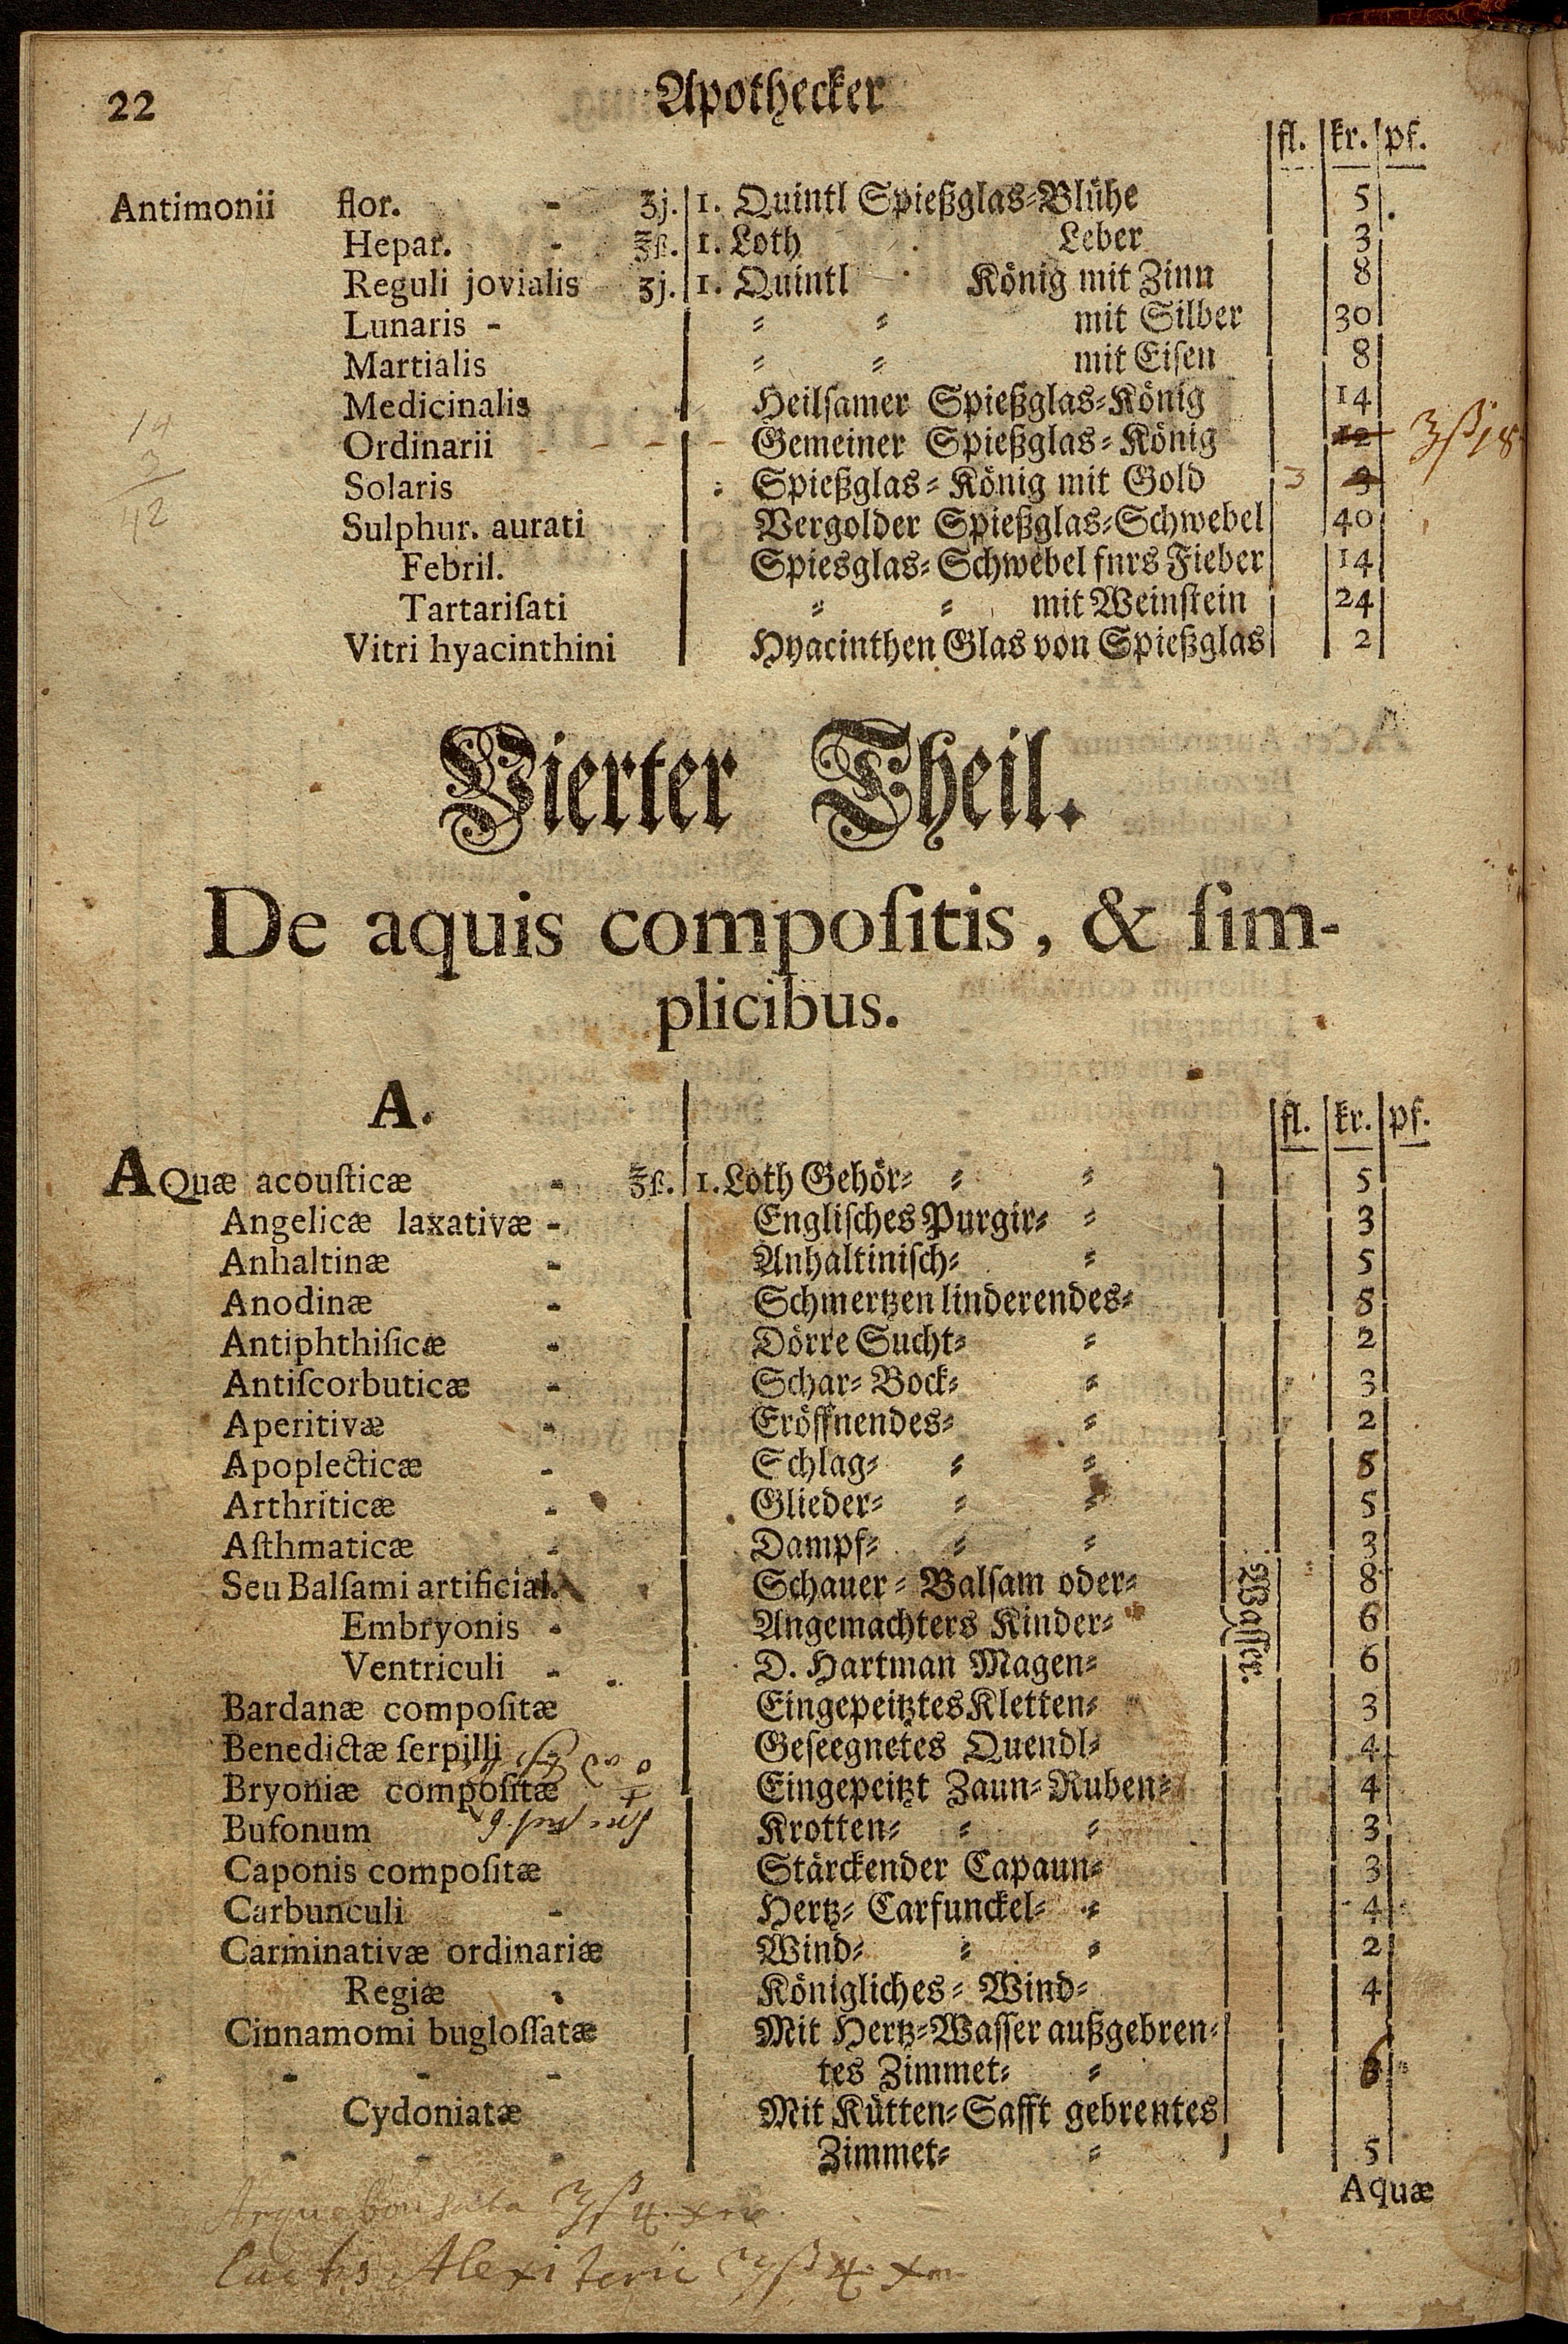 22 Apothecker
fl. kr. pf.
Antimonii flor. - ʒj. 1. Quintl Spießglas⸗Blühe 5
Hepar. - ℥ß. 1. Loth Leber 3
Reguli jovialis ʒj. 1. Quintl König mit Zinn 8
Lunaris - ⸗ ⸗ mit Silber 30
Martialis ⸗ ⸗ mit Eiſen 8
Medicinalis Heilſamer Spießglas⸗König 14
Ordinarii - - - - Gemeiner Spießglas⸗König 12 ℥ß 18
Solaris Spießglas⸗König mit Gold 3 3
Sulphur. aurati Vergolder Spießglas⸗Schwebel 40
Febril. Spiesglas⸗Schwebel fnrs Fieber 14
Tartariſati ⸗ ⸗ mit Weinſtein 24
Vitri hyacinthini Hyacinthen Glas von Spießglas 2
14
3
42
Vierter Theil.
De aquis compoſitis, & ſim-
plicibus.
A.
fl. kr. pf.
AQuæ acouſticæ - ℥ß. 1. Loth Gehör⸗ ⸗ ⸗ 5
Angelicæ laxativæ - Engliſches Purgir⸗ ⸗ 3
Anhaltinæ - Anhaltiniſch⸗ ⸗ 5
Anodinæ - Schmertzen linderendes⸗ 8
Antiphthiſicæ - Dörre Sucht⸗ ⸗ 2
Antiſcorbuticæ - Schar⸗Bock⸗ ⸗ 3
Aperitivæ - Eröffnendes⸗ ⸗ 2
Apoplecticæ - Schlag⸗ ⸗ ⸗ 8
Arthriticæ - Glieder⸗ ⸗ ⸗ 5
Aſthmaticæ - Dampf⸗ ⸗ ⸗ 3
Seu Balſami artificial. Schauer⸗Balſam oder⸗ 8
Embryonis - Angemachters Kinder⸗ 6
Ventriculi - D. Hartman Magen⸗ 6
Waſſer.
Bardanæ compoſitæ EingepeitztesKletten⸗ 3
Benedictæ ſerpilli Geſeegnetes Quendl⸗ 4
Bryoniæ compoſitæ Eingepeitzt Zaun⸗Ruben⸗ 4
Bufonum Krotten⸗ ⸗ ⸗ 3
Caponis compoſitæ Stärckender Capaun⸗ 3
Carbunculi - Hertz⸗Carfunckel⸗ ⸗ 4
Carminativæ ordinariæ Wind⸗ ⸗ ⸗ 2
Regiæ - Königliches⸗Wind⸗ 4
Cinnamomi bugloſſatæ Mit Hertz⸗Waſſer außgebren⸗
- - - tes Zimmet⸗ ⸗ 6
Cydoniatæ Mit Kütten⸗Safft gebrentes
- - - Zimmet⸗ ⸗ 5
Aquæ
℥ß 4.
Alexiterii ℥ß 4.